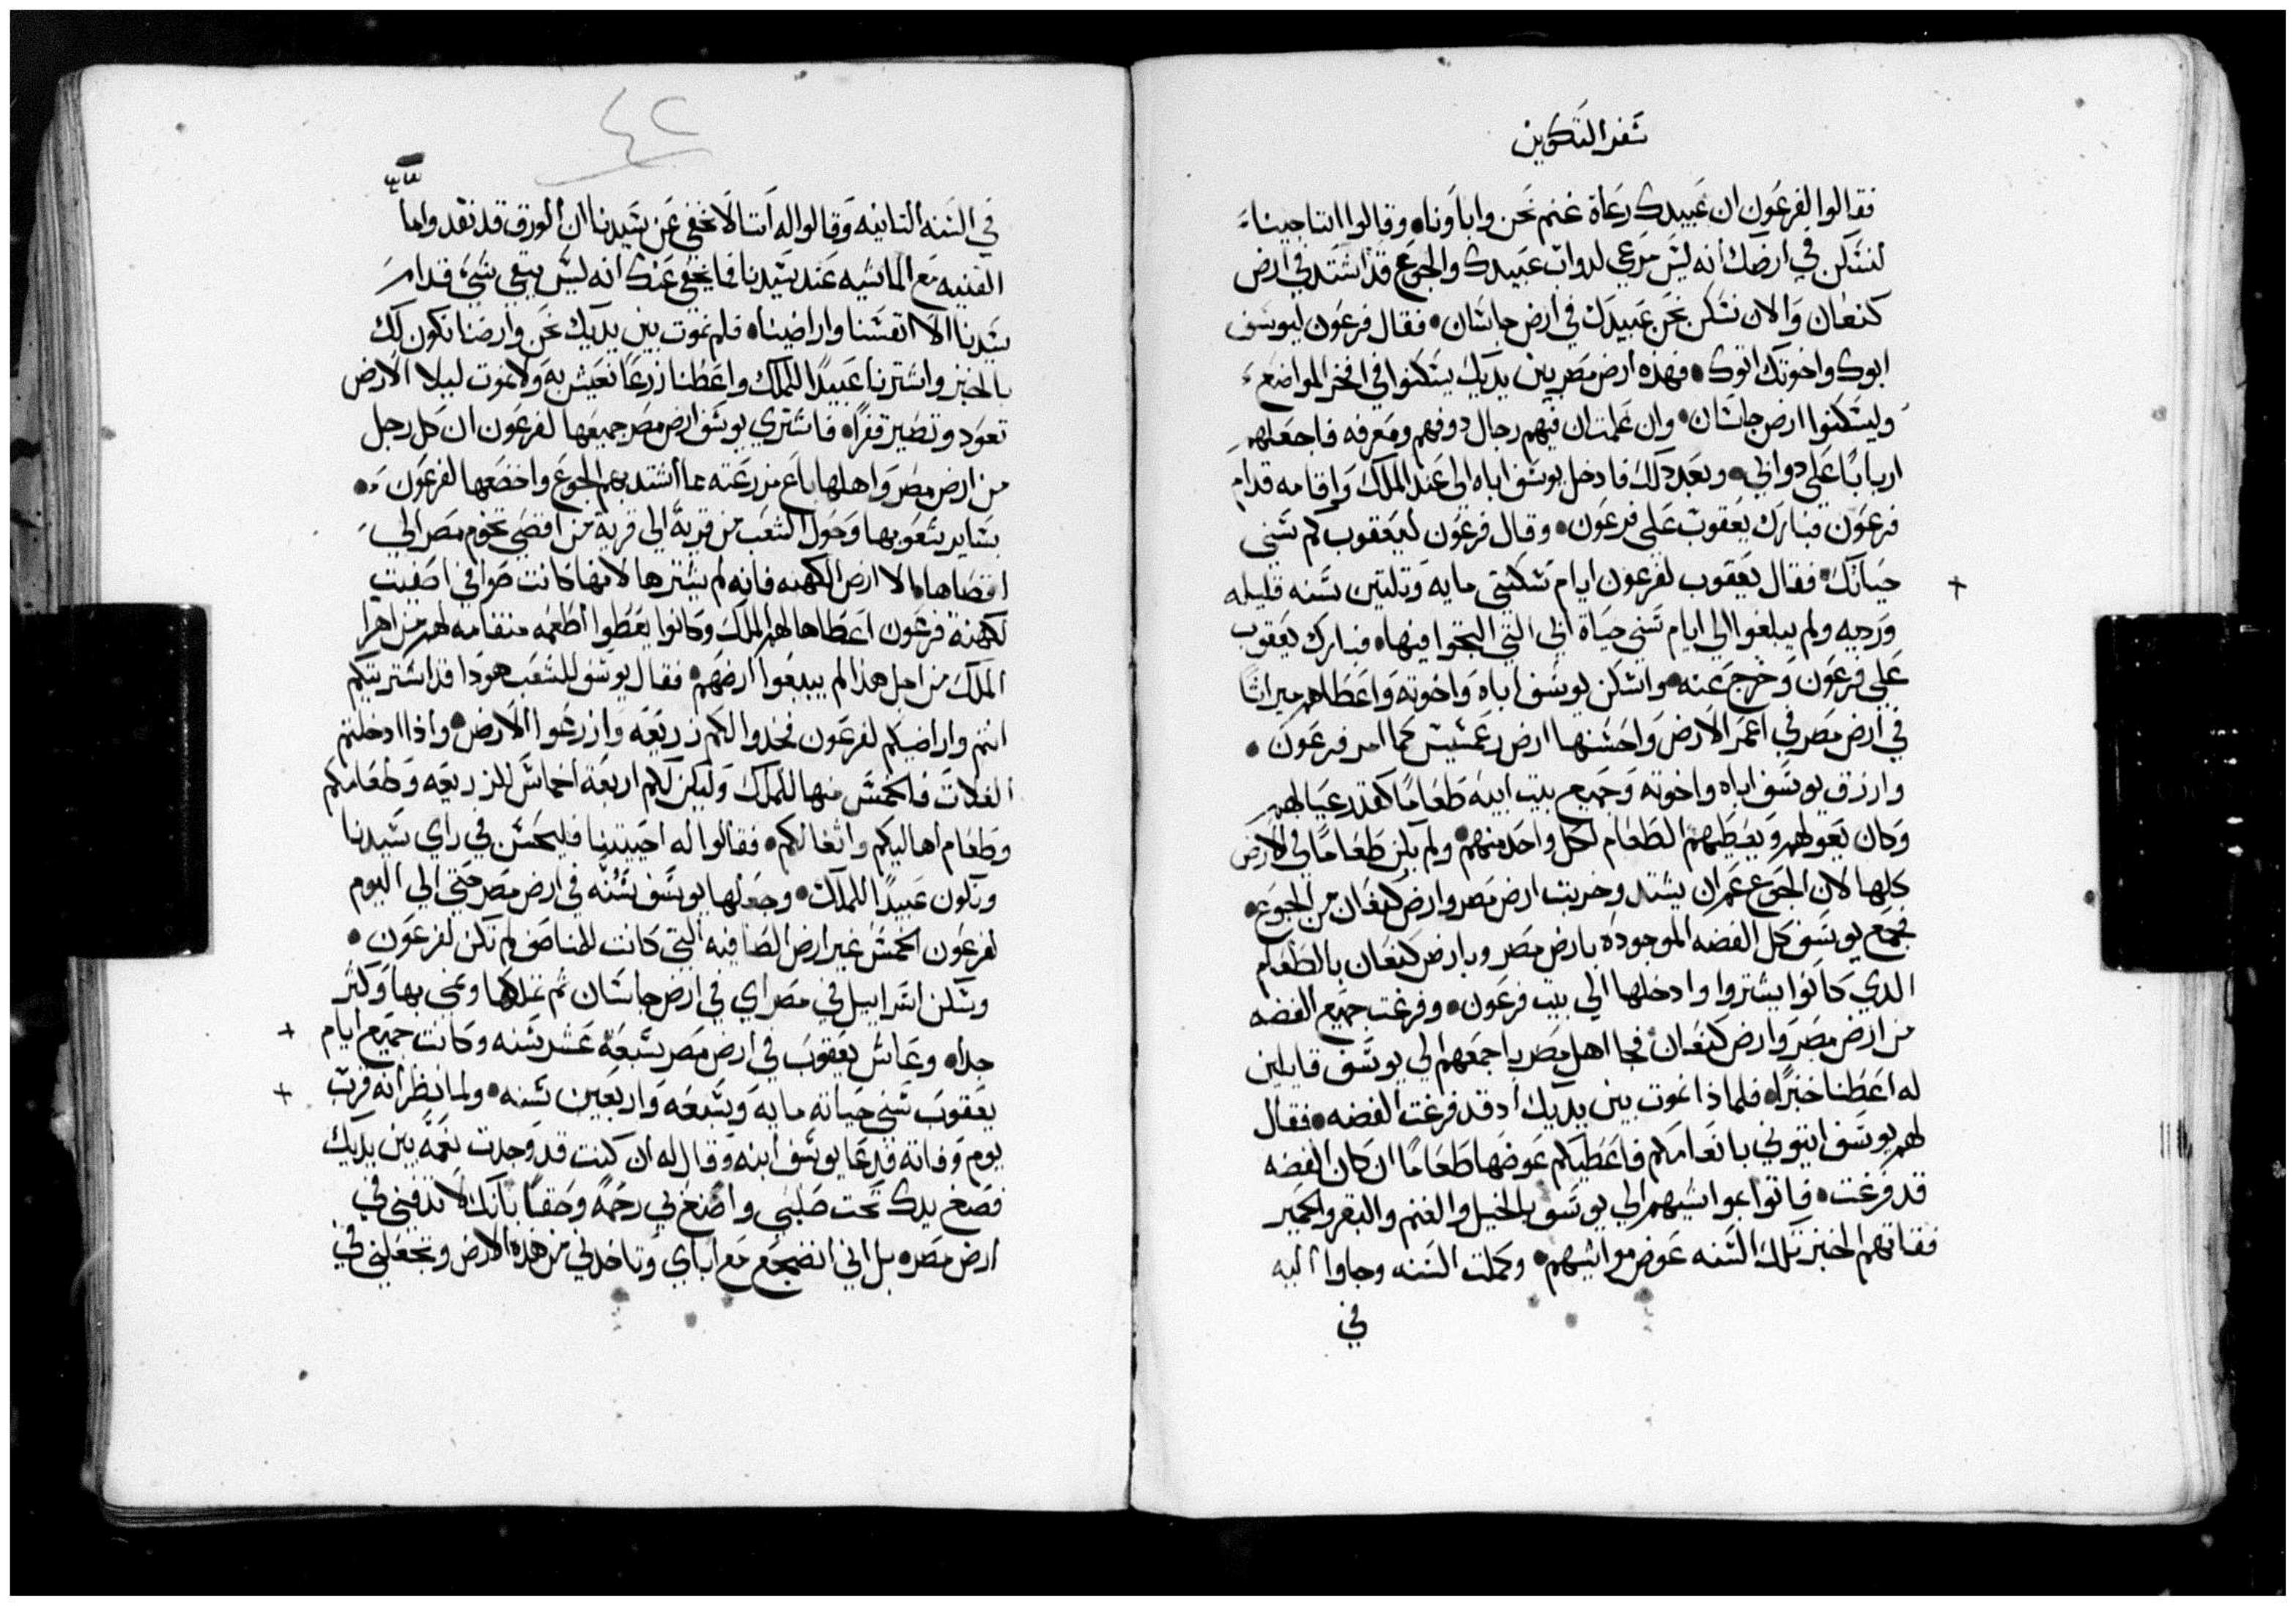 سفر التكوين
فقالوا لفرعون ان عبيدك رعاة غنم نحن واباونا وقالوا اننا جينا
لنسكن في ارضك انه ليس مرعي لدواب عبيدك والجوع قد اشتد في ارض
كنعان والان نسكن نحن عبيدك في ارض جاسان فقال فرعون ليوسف
ابوك واخوتك اتوك فهذه ارض مصر بين يديك يسكنوا في افخر المواضع
وليسكنوا ارض جاسان وان علمت ان فيهم رجال دو فهم ومعرفه فاجعلهم
اربابا علي دوابي وبعد دلك فادخل يوسف اباه الي عند الملك واقامه قدام
فرعون فبارك يعقوب علي فرعون وقال فرعون ليعقوب كم سني
حياتك فقال يعقوب لفرعون ايام سكنتي مايه وتلتين سنه قليله
ورديه ولم يبلغوا الي ايام سني حياة ابي التي التجوا فيها فبارك يعقوب
علي فرعون وخرج عنه واسكن يوسف اباه واخوته واعطاهم ميراثا
في ارض مصر في اعمر الارض واحسنها ارض رعمسيس كما امر فرعون
وارزق يوسف اباه واخوته وجميع بيت ابيه طعاما كقدر عيالهم
وكان يعولهم ويعطيهم الطعام لكل واحد منهم ولم يكن طعاما في الارض
كلها لان الجوع عمران يشتد وخربت ارض مصر وارض كنعان من الجوع
فجمع يوسف كل الفضه الموجوده بارض مصر وبارض كنعان بالطعام
الدي كانوا يشتروا وادخلها الي بيت فرعون وفرغت جميع الفضه
من ارض مصر وارض كنعان فجا اهل مصر باجمعهم الي يوسف قايلين
له اعطنا خبزا فلماذا نموت بين يديك اد قد فرغت الفضه فقال
لهم يوسف ايتوني بانعامكم فاعطيكم عوضها طعاما ان كان الفضه
قد فرغت فاتوا بمواشيهم الي يوسف بالخيل والغنم والبقر والحمير
فقاتهم الخبز تلك السنه عوض مواشيهم وكملت السنه وجاوا اليه
في
٤٢
في السنه التانيه وقالوا له اتنا لا نخفي عن سيدنا ان الورق قد نقد واما
القنيه مع الماشيه عند سيدنا فما يخفي عنك انه ليس يبقي شي قدام
سيدنا الا انفسنا واراضينا فلم نموت بين يديك نحن وارضنا نكون لك
بالخبز واشترنا عبيدا للملك واعطنا زرعا نعيش به ولا نموت ليلا الارض
تعود وتصير قفرا فاشتري يوسف ارض مصر جميعها لفرعون ان كل رجل
من ارض مصر واهلها باع مزرعته مما اشتد بهم الجوع واخضعها لفرعون
بساير شعوبها وحول الشعب من قرية الي قرية من اقصي تخوم مصر الي
اقصاها الا ارض الكهنه فانه لم يشترها لانها كانت صوافي اصفيت
لكهنة فرعون اعطاها لهم الملك وكانوا يعطوا اطعمه منقامه لهم من اهرا
الملك من اجل هذا لم يبيعوا ارضهم فقال يوسف للشعب هودا قد اشتريتكم
انتم واراضيكم لفرعون فخدوا لكم زريعه وازرعوا الارض واذا ادخلتم
الغلات فالخمس منها للملك وليكن لكم اربعة اخماس للزريعه وطعامكم
وطعام اهاليكم واثقالكم فقالوا له احييتنا فليحسن في راي سيدنا
ونكون عبيدا للملك وجعلها يوسف سنه في ارض مصر حتي الي اليوم
لفرعون الخمس غير ارض الصافيه التي كانت للمناصف لم تكن لفرعون
وسكن اسراييل في مصر اي في ارض جاسان ثم تملكها ونمي بها وكثر
جدا وعاش يعقوب في ارض مصر سبعة عشر سنه وكانت جميع ايام
يعقوب سني حياته مايه وسبعه واربعين سنه ولما نظر انه قرب
يوم وفاته فدعا يوسف ابنه وقال له ان كنت قد وجدت نعمه بين يديك
فضع يدك تحت صلبي واصنع لي رحمة وحقا بانك لا تدفني في
ارض مصر بل اني انضجع مع اباي وتاخدني من هده الارض وتجعلني في